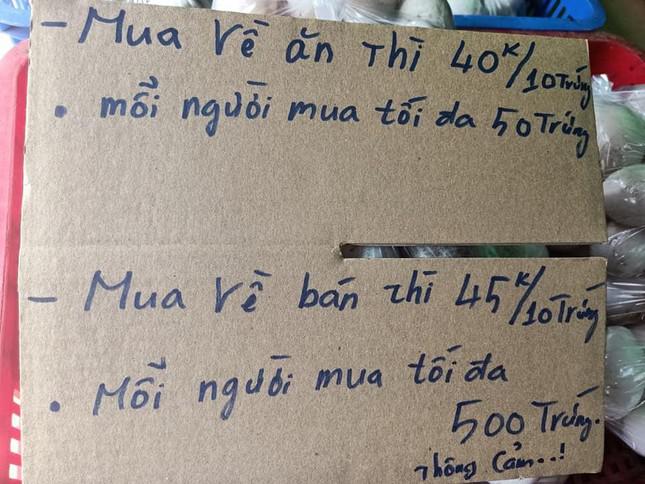 - Mua về ăn thì 40k/10 Trứng
• mỗi người mua tối đa 50 Trứng
- Mua về bán thì 45k/10 Trứng
• Mỗi người mua tối đa
500 Trứng.
Thông Cảm..!